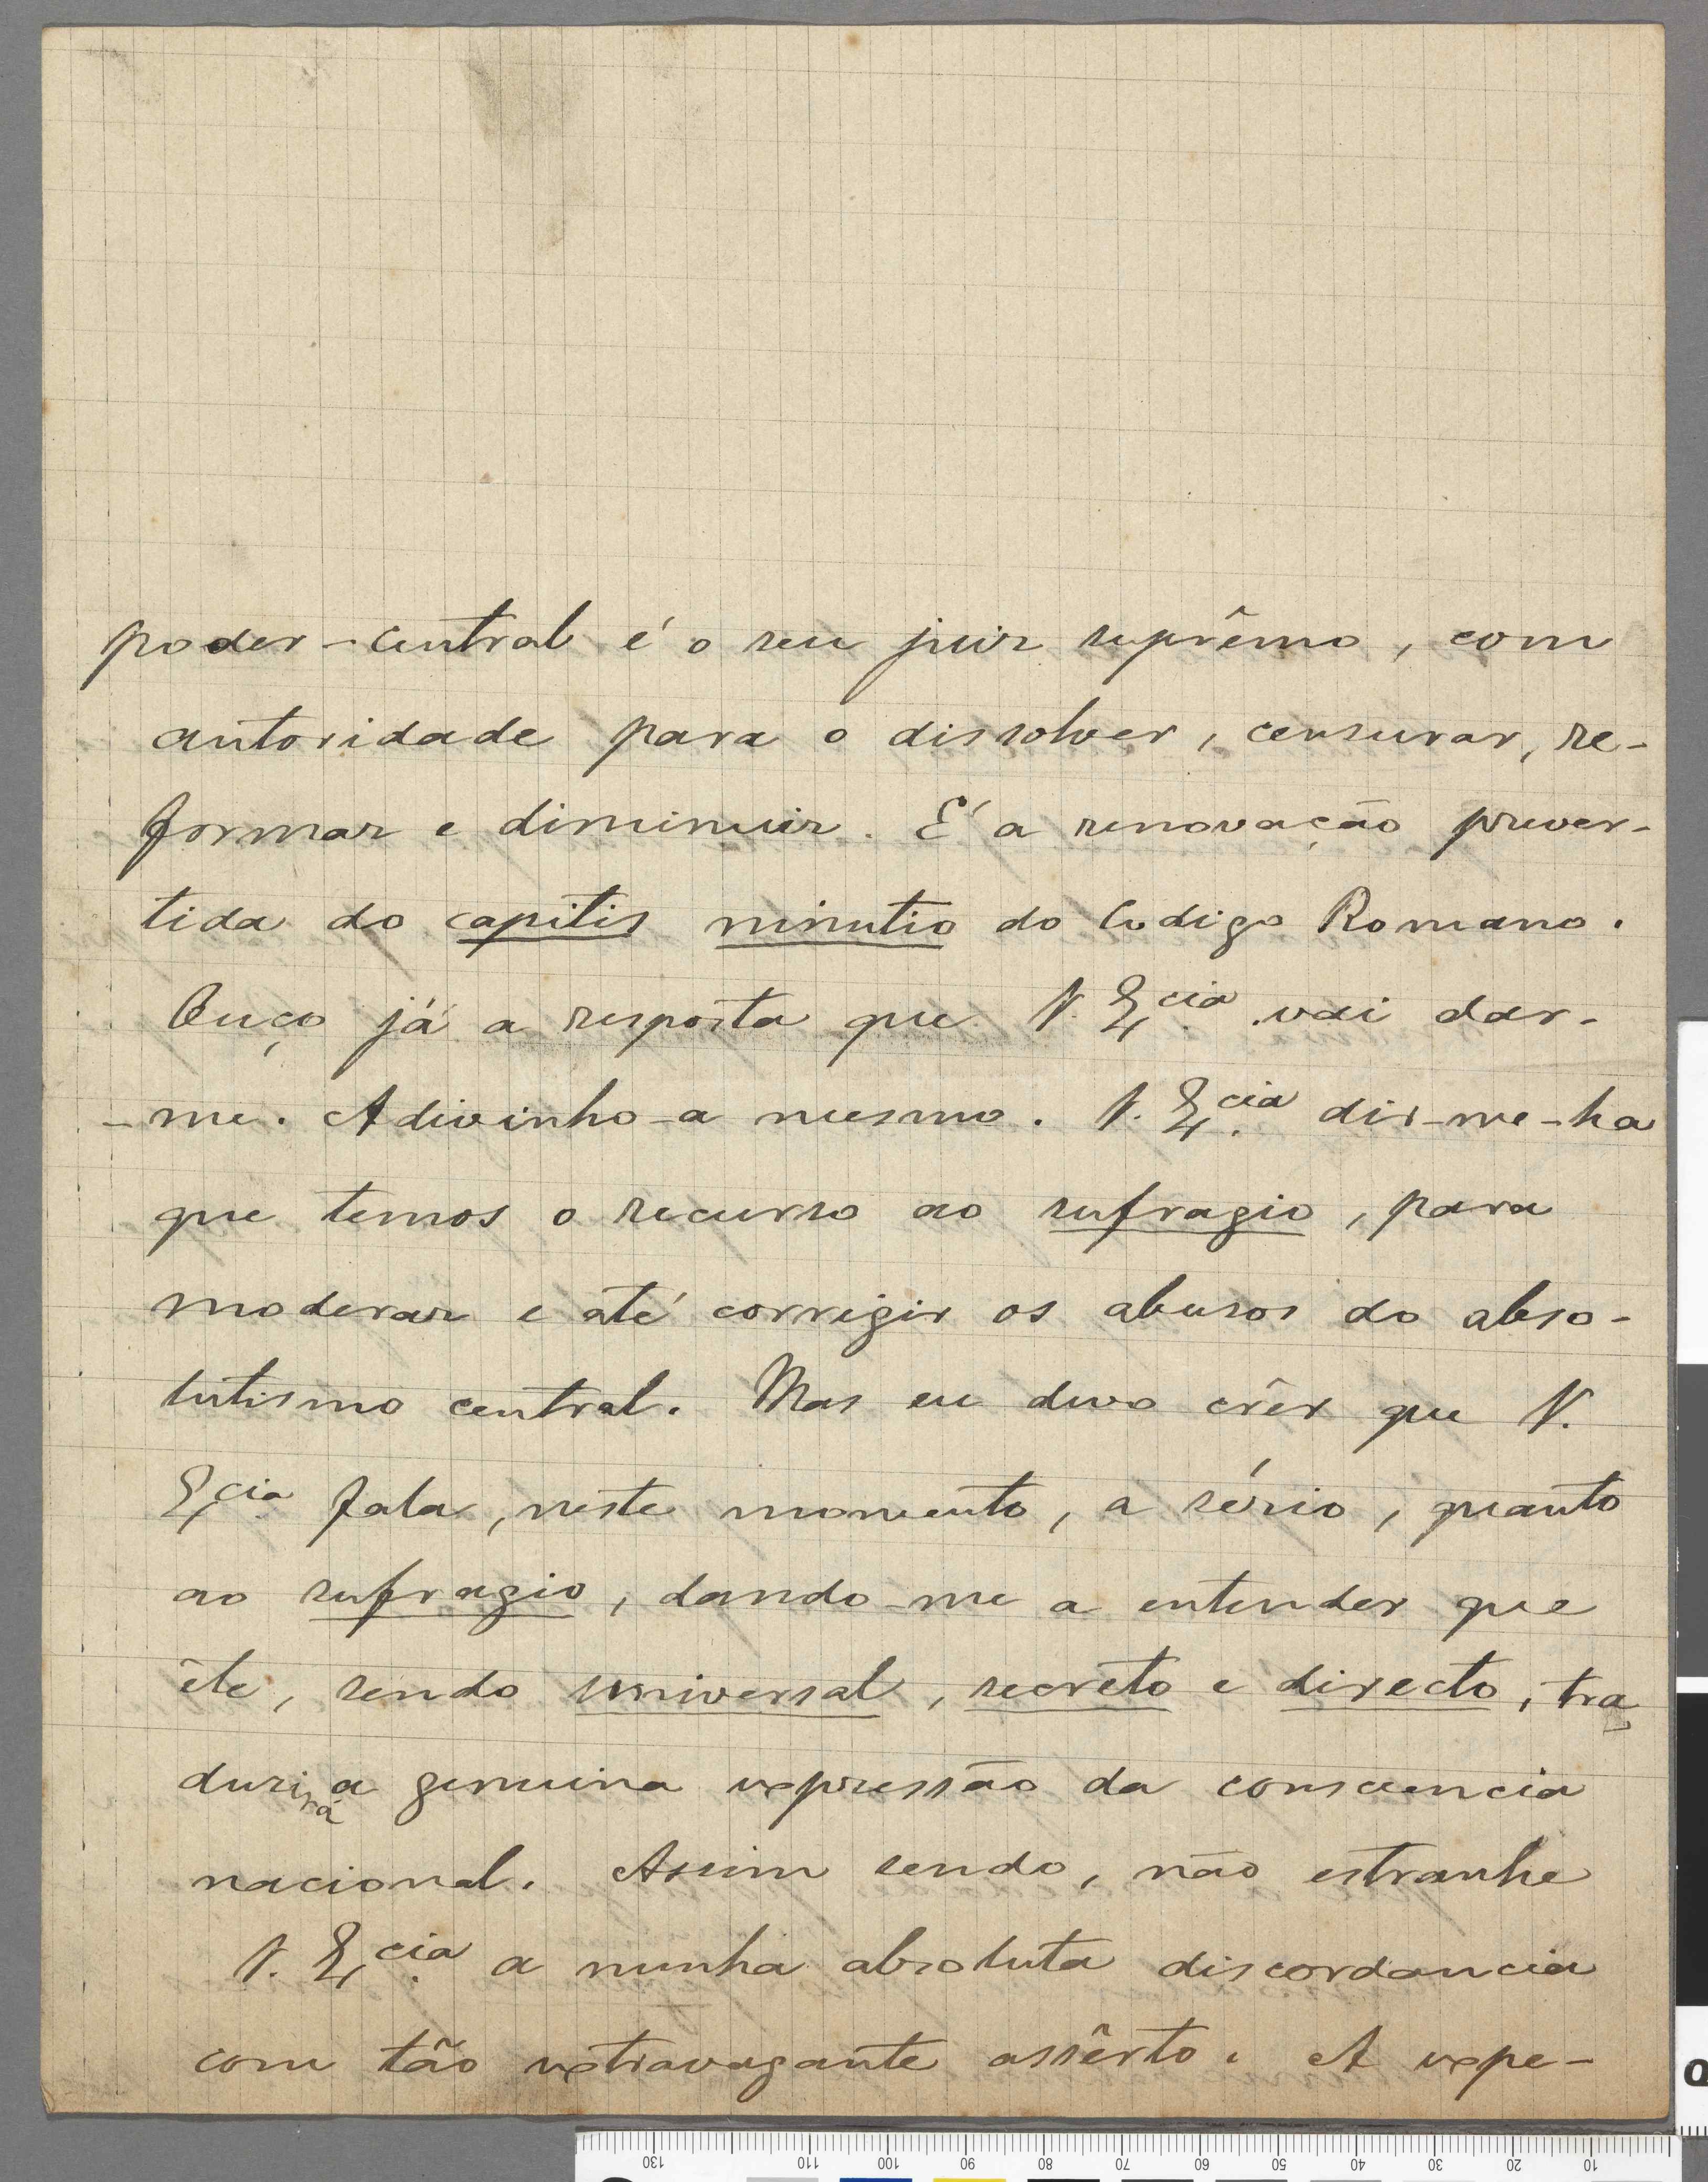 poder-central é o seu juiz suprêmo, com
autoridade para o dissolver, censurar, re-
formar e diminuir. É a renovação prever-
tida do capitis minutio do Codigo Romano.
Ouço já a resposta que V. Ex.cia vai dar-
-me. Adivinho-a mesmo. V. Ex.cia dir-me-ha
que temos o recurso ao sufragio, para
moderar e até corrigir os abusos do abso-
lutismo central. Mas eu devo crêr que V.
Ex.cia fala, neste momento, a sério, quanto
ao sufragio, dando-me a entender que
êle, sendo universal, secreto e directo, tra-
duzirá a genuina expressão da consciencia
nacional. Assim sendo, não estranhe
V. Ex.cia a minha absoluta discordancia
com tão extravagante assêrto. A expe-
130 110 100 90 80 70 60 50 40 30 20 10